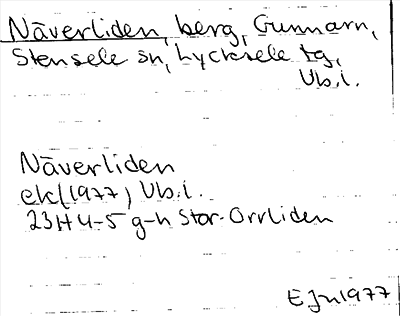 Näverliden, berg, Gunnarn,
Stensele sn, Lycksele tg,
Vb.l.
Näverliden
ek (1977) Vb.l.
23H 4-5 g-h Stor-Orrliden
EJn 1977